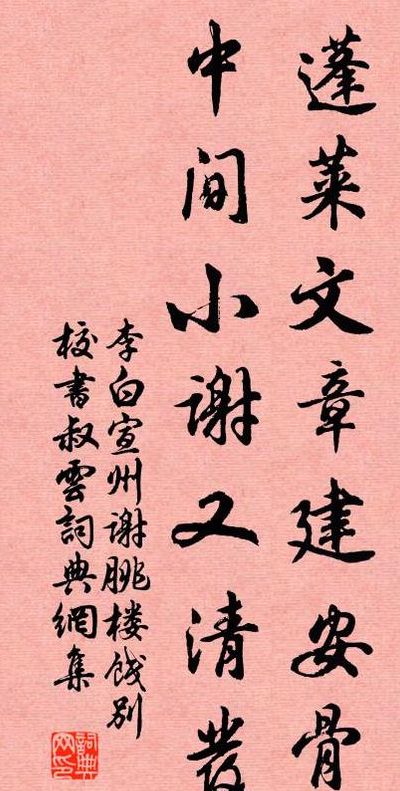 蓬莱文章建安骨
中间小谢又清发
李白宣州谢朓楼饯别
校書叔雲詞典網集
詞典網印